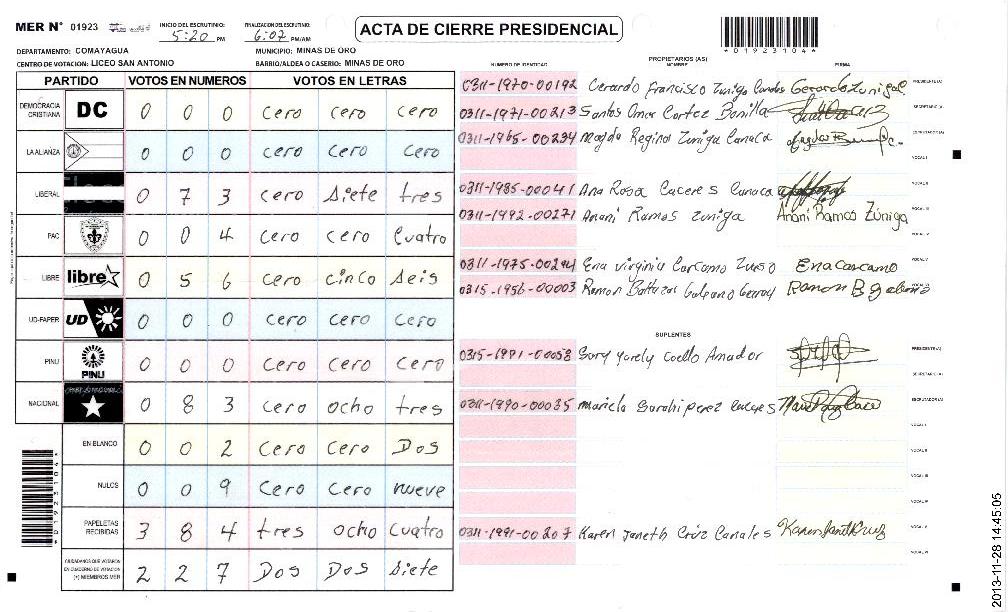 MER N° 01923
INICIO DEL ESCRUTINIO: 5:20 PM
FINALIZACION DEL ESCRUTINIO: 6:07 PM/AM
ACTA DE CIERRE PRESIDENCIAL
*01923104*
DEPARTAMENTO: COMAYAGUA
MUNICIPIO: MINAS DE ORO
CENTRO DE VOTACION: LICEO SAN ANTONIO
BARRIO/ALDEA O CASERIO: MINAS DE ORO
PARTIDO VOTOS EN NUMEROS VOTOS EN LETRAS
DEMOCRACIA CRISTIANA DC 0 0 0 cero cero cero
LA ALIANZA 0 0 0 cero cero cero
LIBERAL 0 7 3 cero siete tres
PAC 0 0 4 cero cero cuatro
LIBRE libre 0 5 6 cero cinco seis
UD-FAPER UD 0 0 0 cero cero cero
PINU PINU 0 0 0 cero cero cero
NACIONAL 0 8 3 cero ocho tres
EN BLANCO 0 0 2 cero cero Dos
NULOS 0 0 9 cero cero nueve
PAPELETAS RECIBIDAS 3 8 4 tres ocho cuatro
CIUDADANOS QUE VOTARON EN CUADERNO DE VOTACION (+) MIEMBROS MER 2 2 7 Dos Dos siete
NUMERO DE IDENTIDAD
PROPIETARIOS (AS)
NOMBRE
FIRMA
0311-1970-00192 Gerardo Francisco Zuniga Gerardo Zuniga PRESIDENTE(A)
0311-1971-00213 Santos Omar Cortez Bonilla SECRETARIO(A)
0311-1965-00234 Magda Regina Zuniga Canaca ESCRUTADOR(A)
VOCAL I
0311-1985-00041 Ana Rosa Caceres Canaca VOCAL II
0311-1992-00271 Anani Ramos Zuniga Anani Ramos Zúniga VOCAL III
VOCAL IV
0311-1975-00244 Ena Virginia Carcamo Ena Carcamo VOCAL V
0315-1956-00003 Ramon Baltazar Ramon B VOCAL VI
SUPLENTES
0315-1991-00058 Sary Yorely Coello Amador PRESIDENTE(A)
SECRETARIO(A)
0311-1990-00035 Mariela Sarahi perez caceres ESCRUTADOR(A)
VOCAL I
VOCAL II
VOCAL III
VOCAL IV
0311-1991-00207 Karen Janeth Cruz Canales VOCAL V
VOCAL VI
2013-11-28 14:45:05